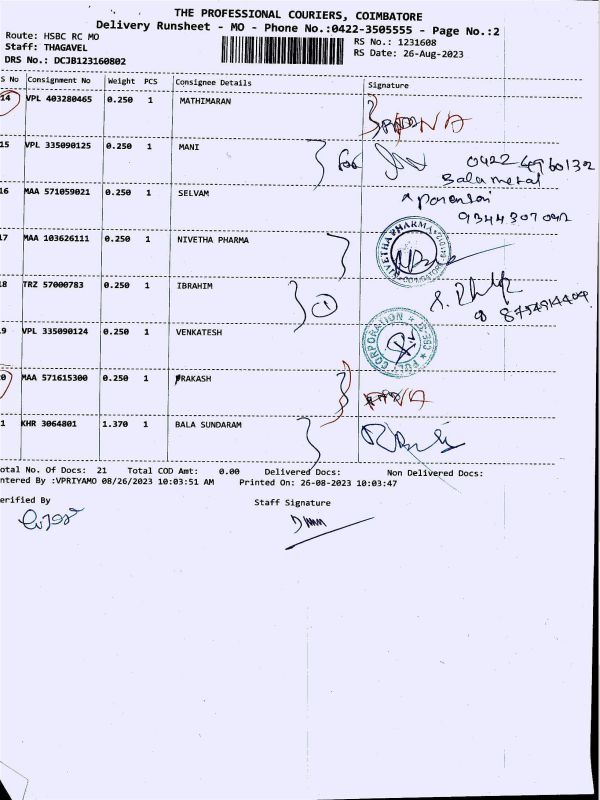 THE PROFESSIONAL COURIERS, COIMBATORE
Delivery Runsheet - MO - Phone No.:0422-3505555 - Page No.:2
Route: HSBC RC MO
Staff: THAGAVEL
DRS No.: DCJB123160802
RS No.: 1231608
RS Date: 26-Aug-2023
S No Consignment No Weight PCS Consignee Details Signature
14 VPL 403280465 0.250 1 MATHIMARAN
NA
15 VPL 335090125 0.250 1 MANI
for
Balametal
16 MAA 571059021 0.250 1 SELVAM
9344307092
17 MAA 103626111 0.250 1 NIVETHA PHARMA
NIVETHA PHARMA
18 TRZ 57000783 0.250 1 IBRAHIM
1
19 VPL 335090124 0.250 1 VENKATESH
CORPORATION
20 MAA 571615300 0.250 1 PRAKASH
NA
1 KHR 3064801 1.370 1 BALA SUNDARAM
otal No. Of Docs: 21 Total COD Amt: 0.00 Delivered Docs: Non Delivered Docs:
ntered By :VPRIYAMO 08/26/2023 10:03:51 AM Printed On: 26-08-2023 10:03:47
erified By
Staff Signature